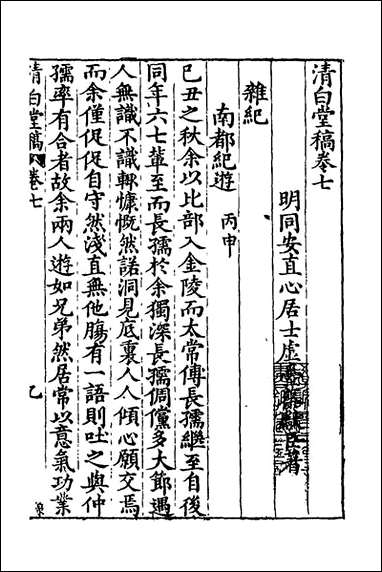 清白堂稿卷七
明同安直心居士虛臺蔡獻臣著
雜紀
南都紀遊 丙申
己丑之秋余以比部入金陵而太常傅長孺繼至自後
同年六七輩至而長孺於余獨深長孺倜儻多大節遇
人無識不識輒慷慨然諾洞見底裏人人傾心願交焉
而余僅促促自守然淺直無他腸有一語則吐之與仲
孺率有合者故余兩人遊如兄弟然居常以意氣功業
清白堂稿 卷七 乙